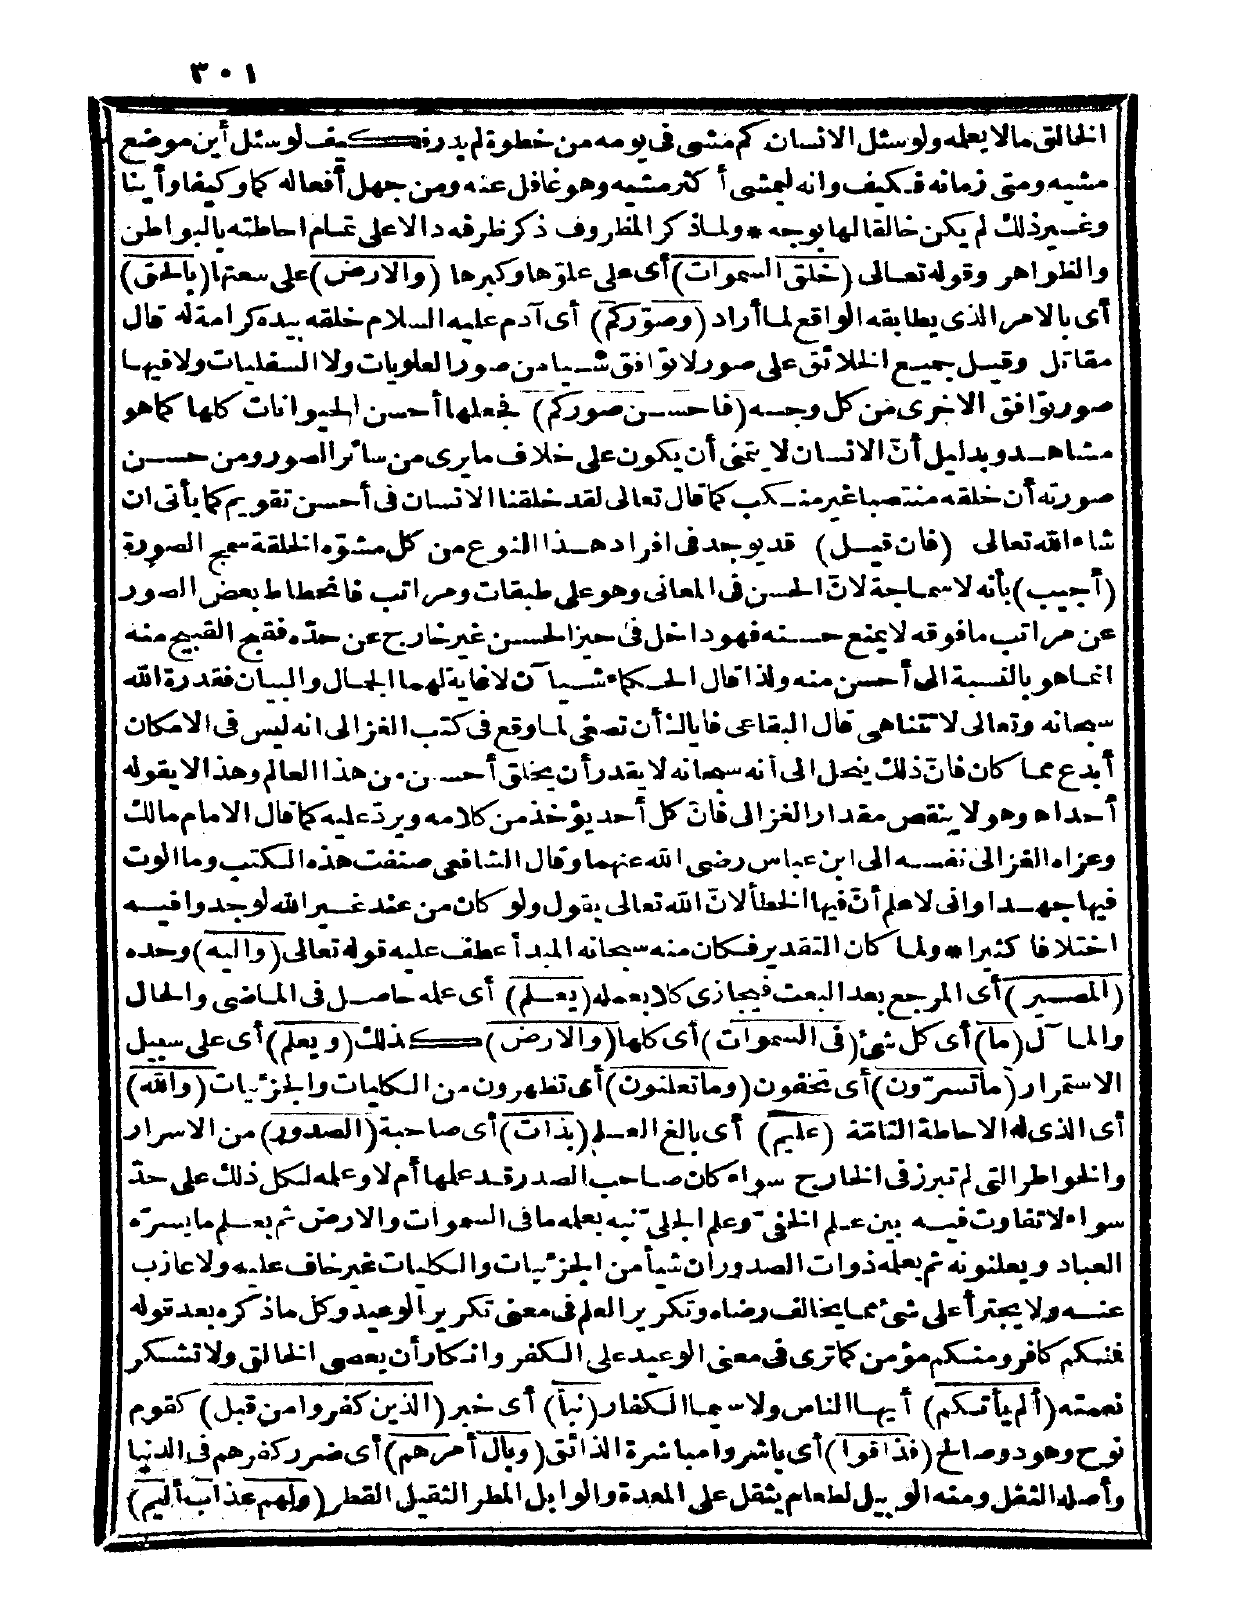 ٣٠١
الخالق مالا يعلمه ولو سئل الانسان كم مشى فى يومه من خطوة لم يدر فكيف لو سئل أين موضع
مشيه ومتى زمانه فكيف وانه ليمشى أكثر مشيه وهو غافل عنه ومن جهل أفعاله كما وكيفا وأينا
وغير ذلك لم يكن خالقا لها بوجه * ولما ذكر المظروف ذكر ظرفه دالا على تمام احاطته بالبواطن
والظواهر وقوله تعالى (خلق السموات) أى على علوّها وكبرها (والارض) على سعتها (بالحق)
أى بالامر الذى يطابقه الواقع لما أراد (وصوّركم) أى آدم عليه السلام خلقه بيده كرامة له قال
مقاتل وقيل جميع الخلائق على صور لا توافق شيأ من صور العلويات ولا السفليات ولا فيها
صور توافق الاخرى من كل وجه (فاحسن صوركم) فجعلها أحسن الحيوانات كلها كما هو
مشاهد وبدليل أنّ الانسان لا يتمنى أن يكون على خلاف ما يرى من سائر الصور ومن حسن
صورته أن خلقه منتصبا غير منكب كما قال تعالى لقد خلقنا الانسان فى أحسن تقويم كما يأتى ان
شاء الله تعالى (فان قيل) قد يوجد فى افراد هذا النوع من كل مشوّه الخلقة سمج الصورة
(أجيب) بأنه لا سماجة لانّ الحسن فى المعانى وهو على طبقات ومراتب فانحطاط بعض الصور
عن مراتب ما فوقه لا يمنع حسنه فهو داخل فى حيز الحسن غير خارج عن حدّه فقبح القبيح منه
انما هو بالنسبة الى أحسن منه ولذا قال الحكماء شيآن لا غاية لهما الجمال والبيان فقدرة الله
سبحانه وتعالى لا تتناهى قال البقاعى فاياك أن تصغى لما وقع فى كتب الغزالى انه ليس فى الامكان
أبدع مما كان فانّ ذلك ينحل الى أنه سبحانه لا يقدر أن يخلق أحسن من هذا العالم وهذا لا يقوله
أحد اه وهو لا ينقص مقدار الغزالى فانّ كل أحد يؤخذ من كلامه ويردّ عليه كما قال الامام مالك
وعزاه الغزالى نفسه الى ابن عباس رضى الله عنهما وقال الشافعى صنفت هذه الكتب وما ألوت
فيها جهدا وانى لاعلم أنّ فيها الخطأ لانّ الله تعالى يقول ولو كان من عند غير الله لوجدوا فيه
اختلافا كثيرا * ولما كان التقدير فكان منه سبحانه المبدأ عطف عليه قوله تعالى (واليه) وحده
(المصير) أى المرجع بعد البعث فيجازى كلا بعمله (يعلم) أى علمه حاصل فى الماضى والحال
والمآل (ما) أى كل شئ (فى السموات) أى كلها (والارض) كذلك (ويعلم) أى على سبيل
الاستمرار (ما تسرّون) أى تخفون (وما تعلنون) أى تظهرون من الكليات والجزئيات (والله)
أى الذى له الاحاطة التامّة (عليم) أى بالغ العلم (بذات) أى صاحبة (الصدور) من الاسرار
والخواطر التى لم تبرز فى الخارج سواء كان صاحب الصدر قد علمها أم لا وعلمه لكل ذلك على حدّ
سواء لا تفاوت فيه بين علم الخفىّ وعلم الجلىّ نبه بعلمه ما فى السموات والارض ثم بعلم ما يسرّه
العباد ويعلنونه ثم بعلمه ذوات الصدور ان شيأ من الجزئيات والكليات غير خاف عليه ولا عازب
عنه ولا يجترأ على شئ مما يخالف رضاه وتكرير العلم فى معنى تكرير الوعيد وكل ما ذكره بعد قوله
فمنكم كافر ومنكم مؤمن كما ترى فى معنى الوعيد على الكفر وانكار أن يعصى الخالق ولا تشكر
نعمته (ألم يأتكم) أيها الناس ولا سيما الكفار (نبأ) أى خبر (الذين كفروا من قبل) كقوم
نوح وهود وصالح (فذاقوا) أى باشروا مباشرة الذائق (وبال أمرهم) أى ضرر كفرهم فى الدنيا
وأصله الثقل ومنه الوبيل لطعام يثقل على المعدة والوابل المطر الثقيل القطر (ولهم عذاب أليم)